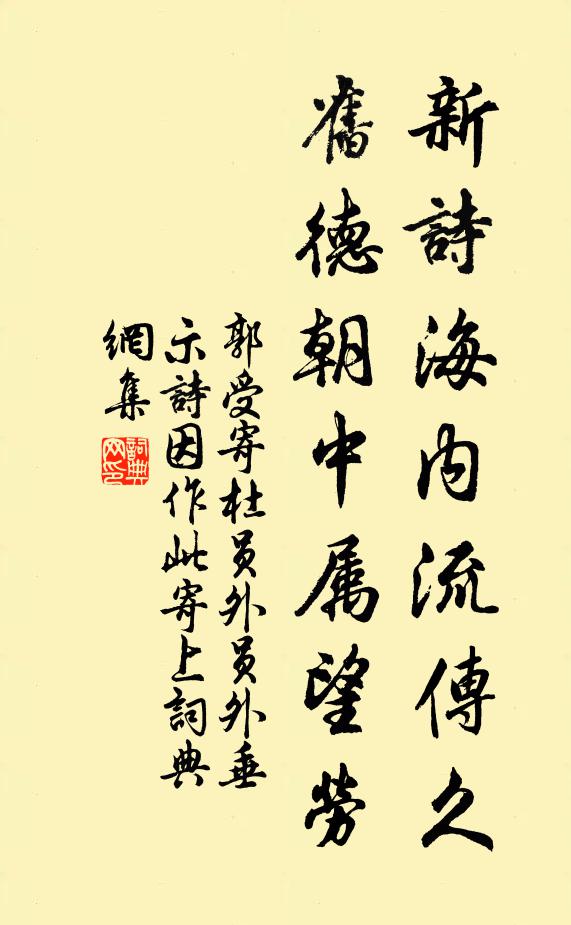 新詩海内流傳久
舊德朝中属望勞
郭受寄杜員外員外垂
示詩因作此寄上詞典
網集
詞典網印